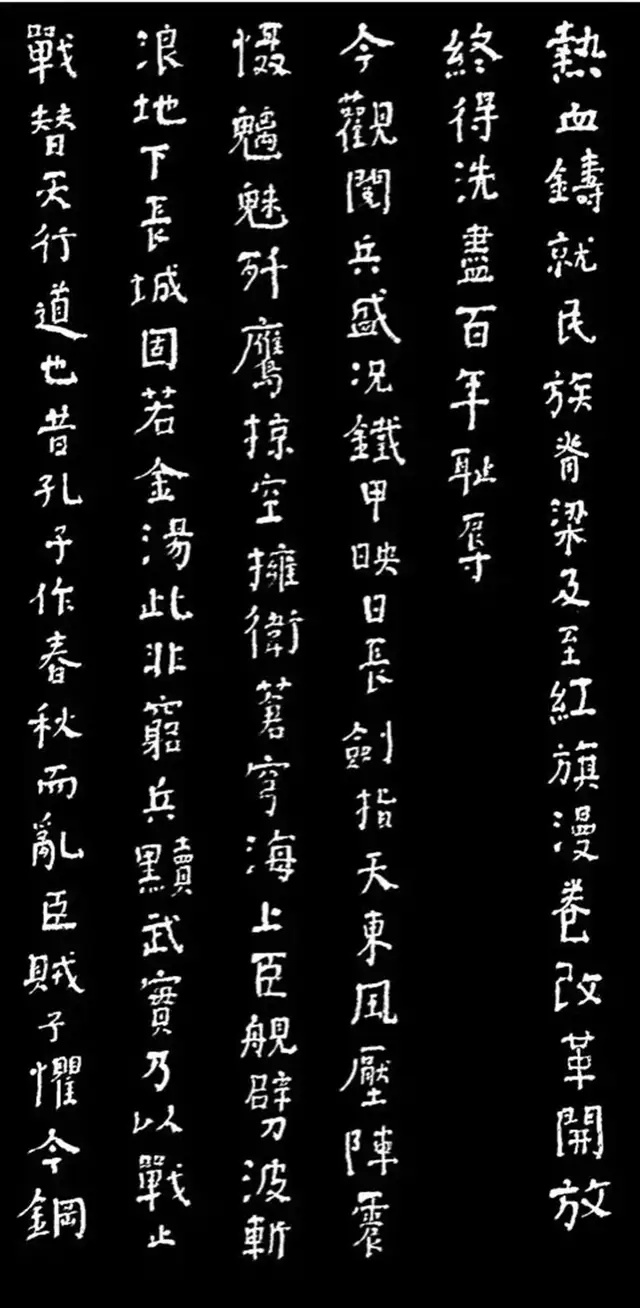 熱血鑄就民族脊梁及至紅旗漫卷改革開放
終得洗盡百年耻辱
今觀閱兵盛况鐵甲映日長劍指天東風壓陣震
慑魑魅歼鷹掠空擁衛蒼穹海上臣舰劈波斬
浪地下長城固若金湯此非窮兵黷武實乃以戰止
戰替天行道也昔孔子作春秋而亂臣賊子懼今鋼